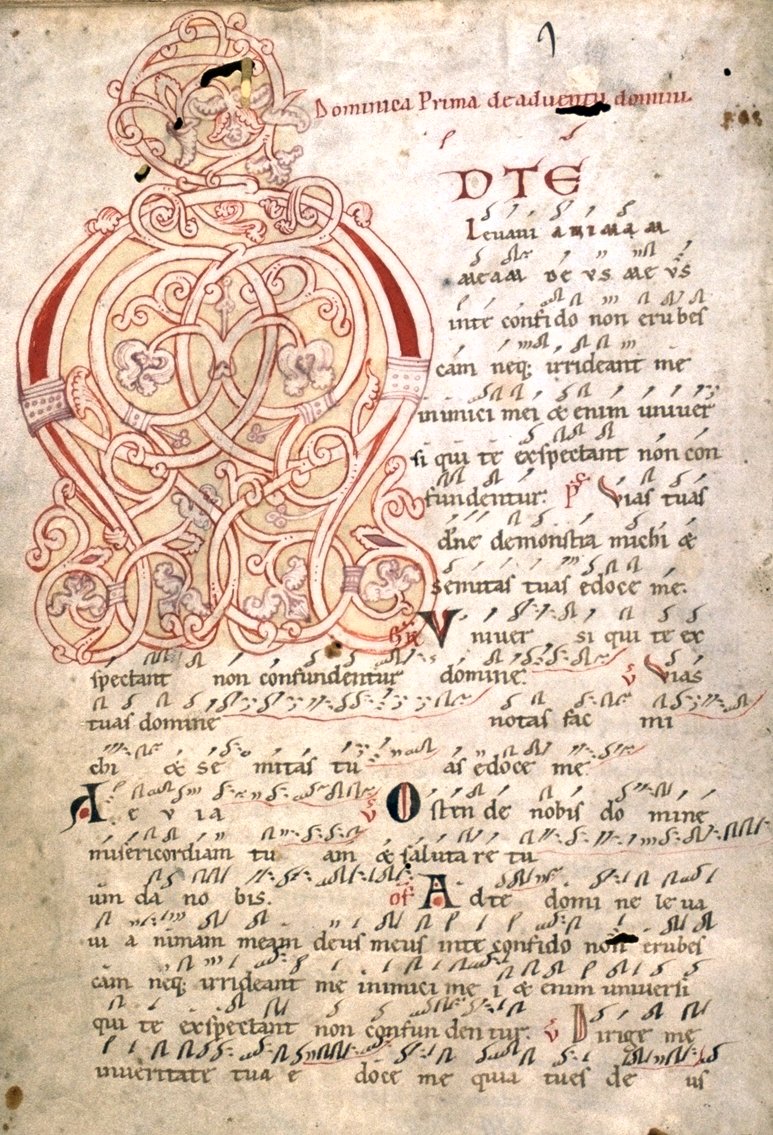 Dominica Prima de adventu domini
D TE
Levavi animam
meam deus meus
inte confido non erubes
cam neq; irrideant me
inimici mei & enim univer
si qui te exspectant non con
fundentur. ps Vias tuas
dne demonstra michi &
semitas tuas edoce me.
GR Univer si qui te ex
spectant non confundentur domine. V Vias
tuas domine notas fac mi
chi & se mitas tu as edoce me.
A e v i a V Osten de nobis do mine
misericordiam tu am & saluta re tu
um da no bis. of Adte domi ne le va
vi a nimam meam deus meus inte confido non erubes
cam neq; irrideant me inimici me i & enim universi
qui te exspectant non confun den tur. V Dirige me
inveritate tua e doce me quia tues de us